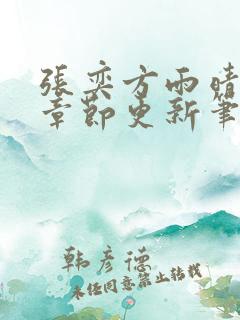 張奕方雨晴
章節更新筆
韩彦德
未经同意禁止转载